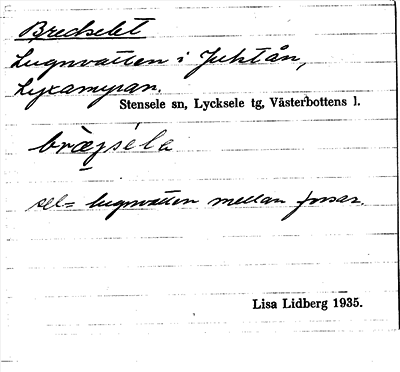 Bredselet
Lugnvatten i Juktån,
Lyxamyran.
Stensele sn, Lycksele tg, Västerbottens l.
sel = lugnvatten mellan forsar.
Lisa Lidberg 1935.